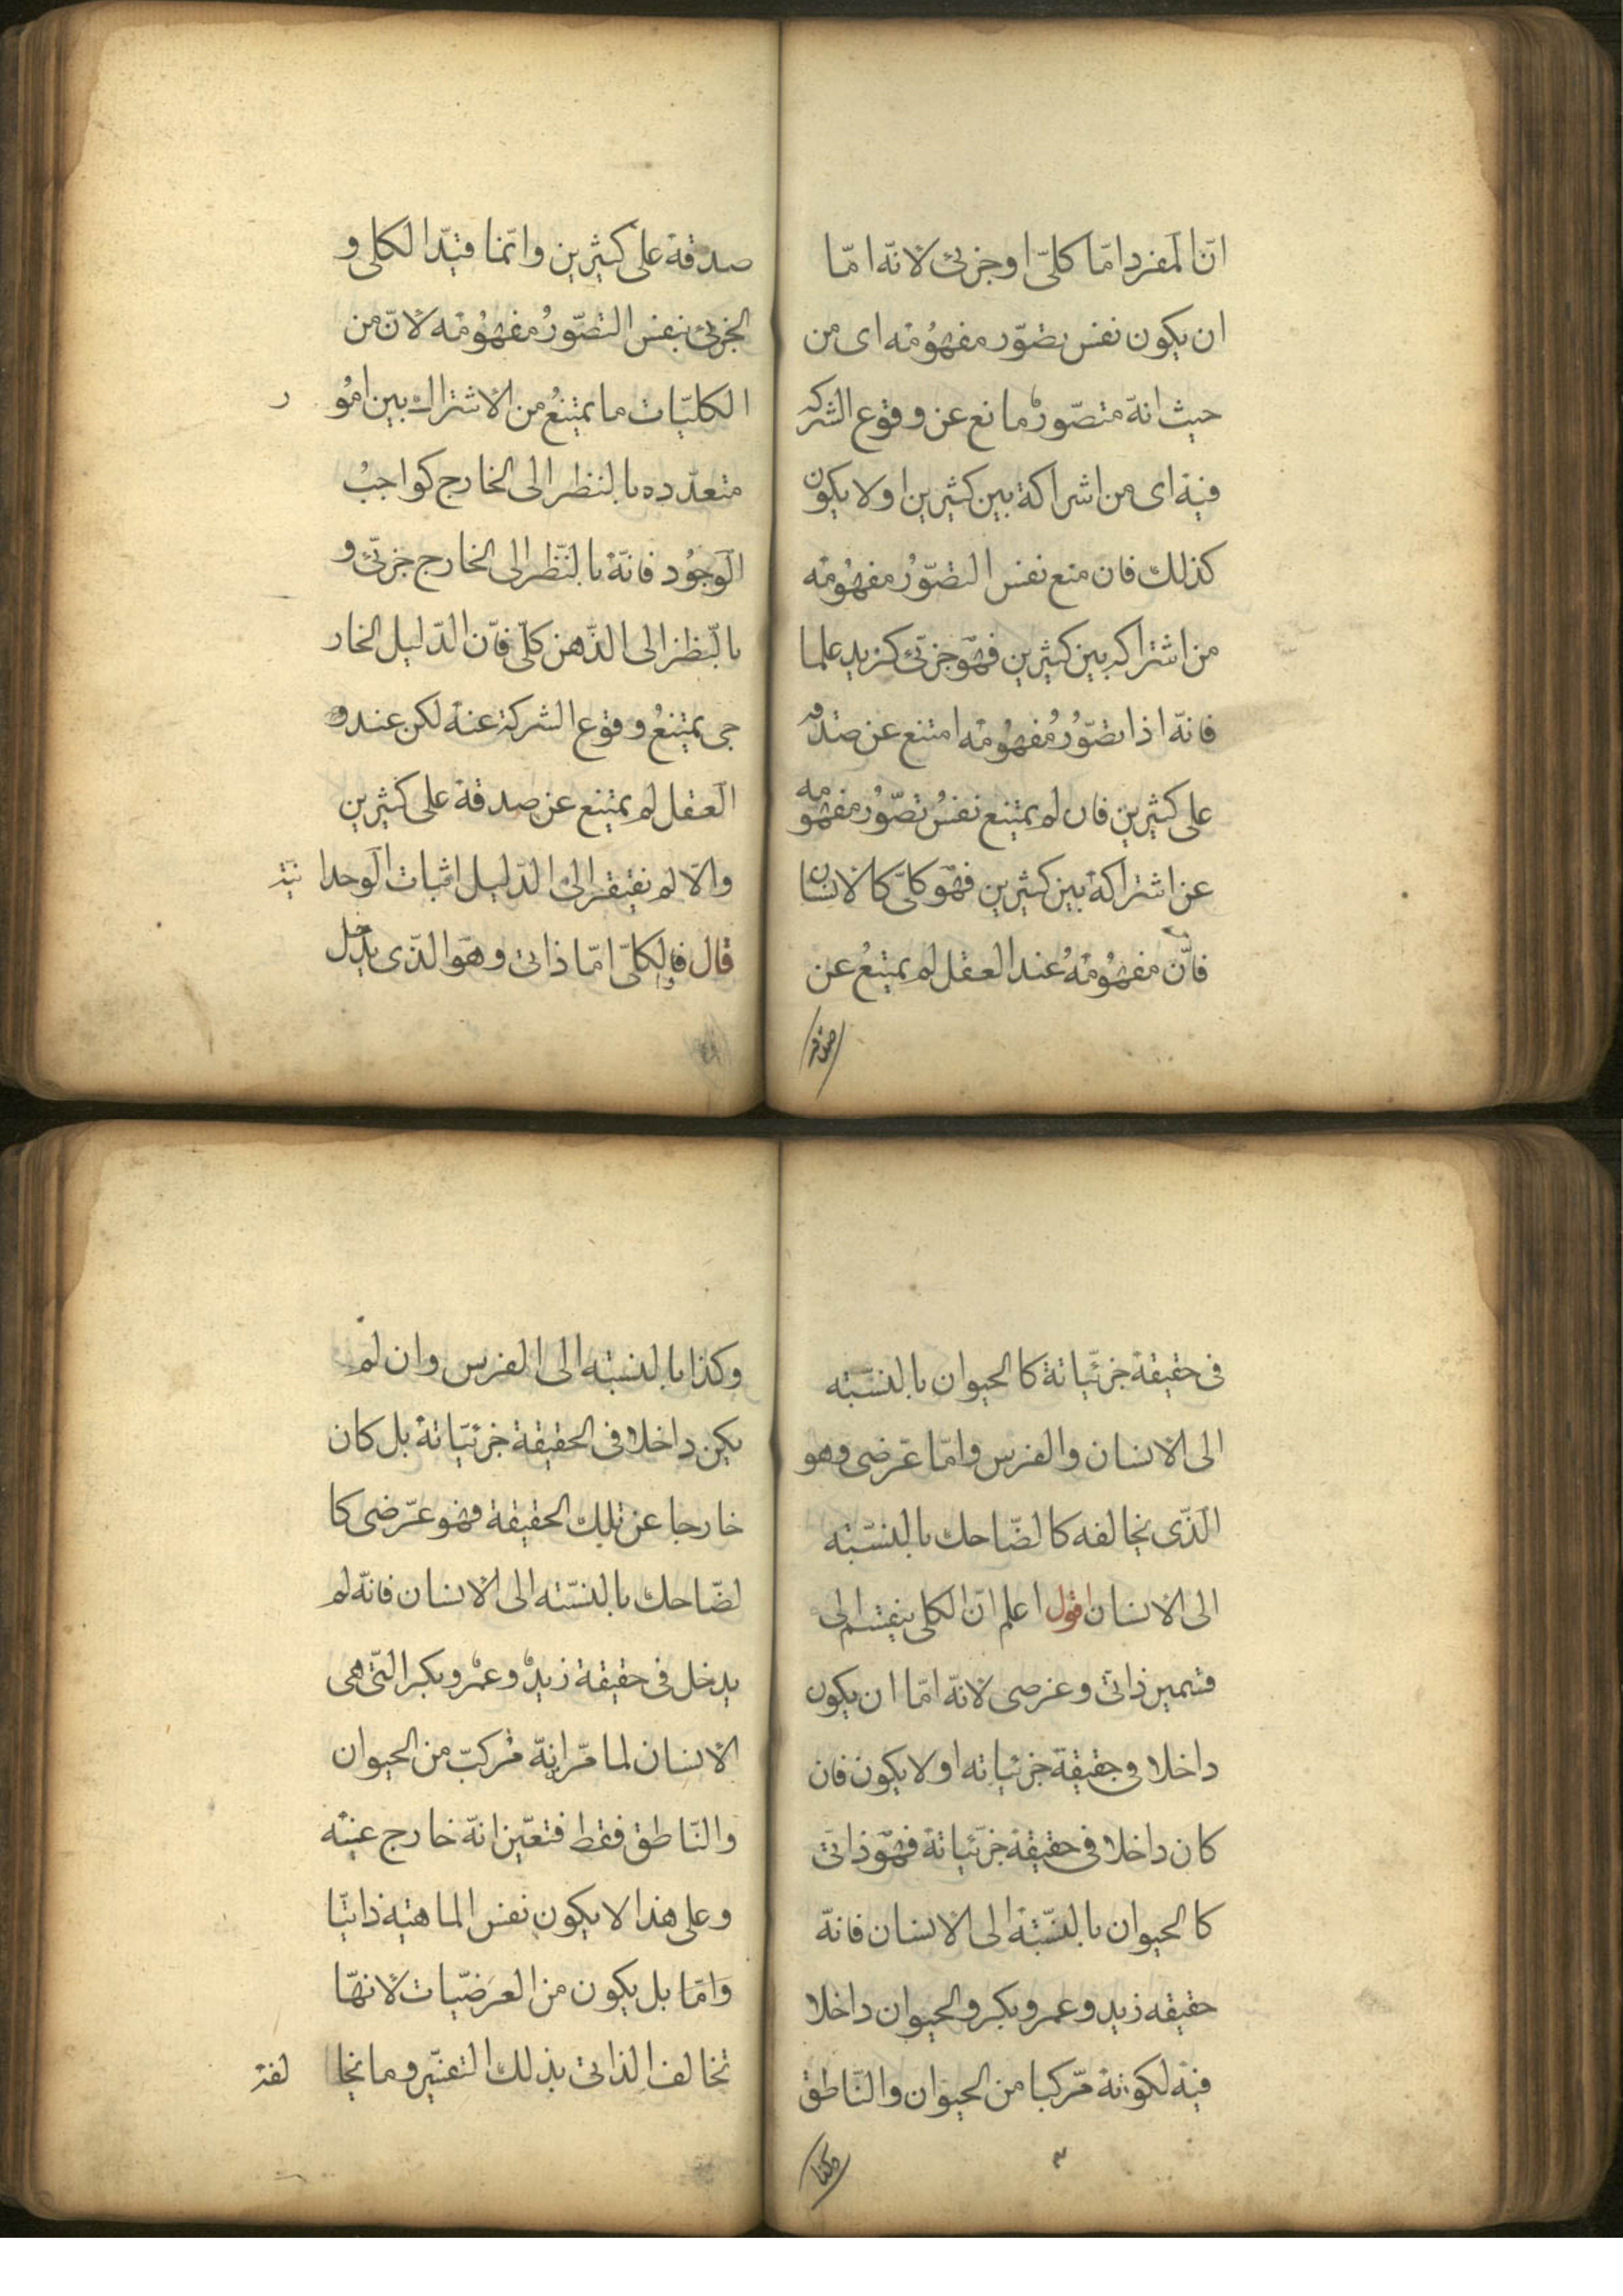 انّ المفرد امّا كلىّ او جزئى لانّه امّا
ان يكون نفس تصوّر مفهومه اى من
حيث انه متصّور مانع عن وقوع الشركه
فيه اى من اشراكة بين كثيرين او لا يكون
كذلك فان منع نفس التصّور مفهومه
من اشتراكه بين كثيرين فهو جزئى كزيد علما
فانّه اذا تصّور مفهومه امتنع عن صدقه
على كثيرين فان لم يمتنع نفس تصّور مفهومه
عن اشتراكة بين كثيرين فهو كلىّ كالانسان
فانّ مفهومه عند العقل لم يمتنع عن
صدقه
صدقة على كثيرين وانّما قيّد الكلى و
الجزئى بنفس التصّور مفهومه لانّ من
الكليّات ما يمتنع من الاشتراك بين امور
متعدّده بالنظر الى الخارج كواجب
الوجود فانّه بالنّظر الى الخارج جزئى و
بالنّظر الى الذّهن كلّى فانّ الدّليل الخار
جى يمتنع وقوع الشركة عنه لكن عند و
العقل لم يمتنع عن صدقة على كثيرين
والّا لم يفتقر الى الدّليل اثبات الوحدانية
قال فالكلىّ امّا ذاتى وهو الذّى يدخل
فى حقيقة جزئيّاتة كالحيوان بالنسّبته
الى الانسان والفرس وامّا عرضى وهو
الذّى يخالفه كالضّاحك بالنسّبته
الى الانسان اقول اعلم انّ الكلى ينقسم الى
قسمين ذاتى وعرضى لانّه امّا ان يكون
داخلا فى حقيقة جزئياته او لا يكون فان
كان داخلا فى حقيقة جزئياتة فهو ذاتى
كالحيوان بالنسّبة الى الانسان فانّه
حقيقه زيد وعمرو بكر والحيوان داخلا
فيه لكونه مركبا من الحيوان والنّاطق
وكذا
وكذا بالنسبته الى الفرس وان لم
يكن داخلا فى الحقيقة جزئيّاتة بل كان
خارجا عن تلك الحقيقة فهو عرضى كا
لضّاحك بالنسّبته الى الانسان فانّه لم
يدخل فى حقيقة زيد وعمرو بكر التّى هى
الانسان لما مرّ انه مركبّ من الحيوان
والنّاطق فقط فتعيّن انّه خارج عنه
وعلى هذا لا يكون نفس الماهيته ذاتيّا
وامّا بل يكون من العرضيّات لانهّا
تخالف الذاتى بذلك التفسير وما يخالفة